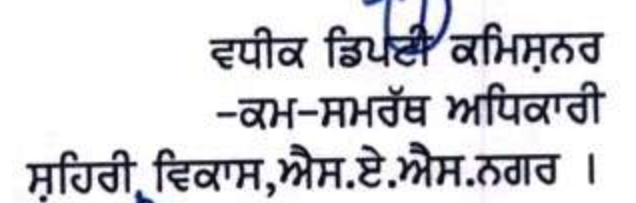 ਵਧੀਕ ਡਿਪਟੀ ਕਮਿਸ਼ਨਰ
-ਕਮ-ਸਮਰੱਥ ਅਧਿਕਾਰੀ
ਸ਼ਹਿਰੀ ਵਿਕਾਸ,ਐਸ.ਏ.ਐਸ.ਨਗਰ ।